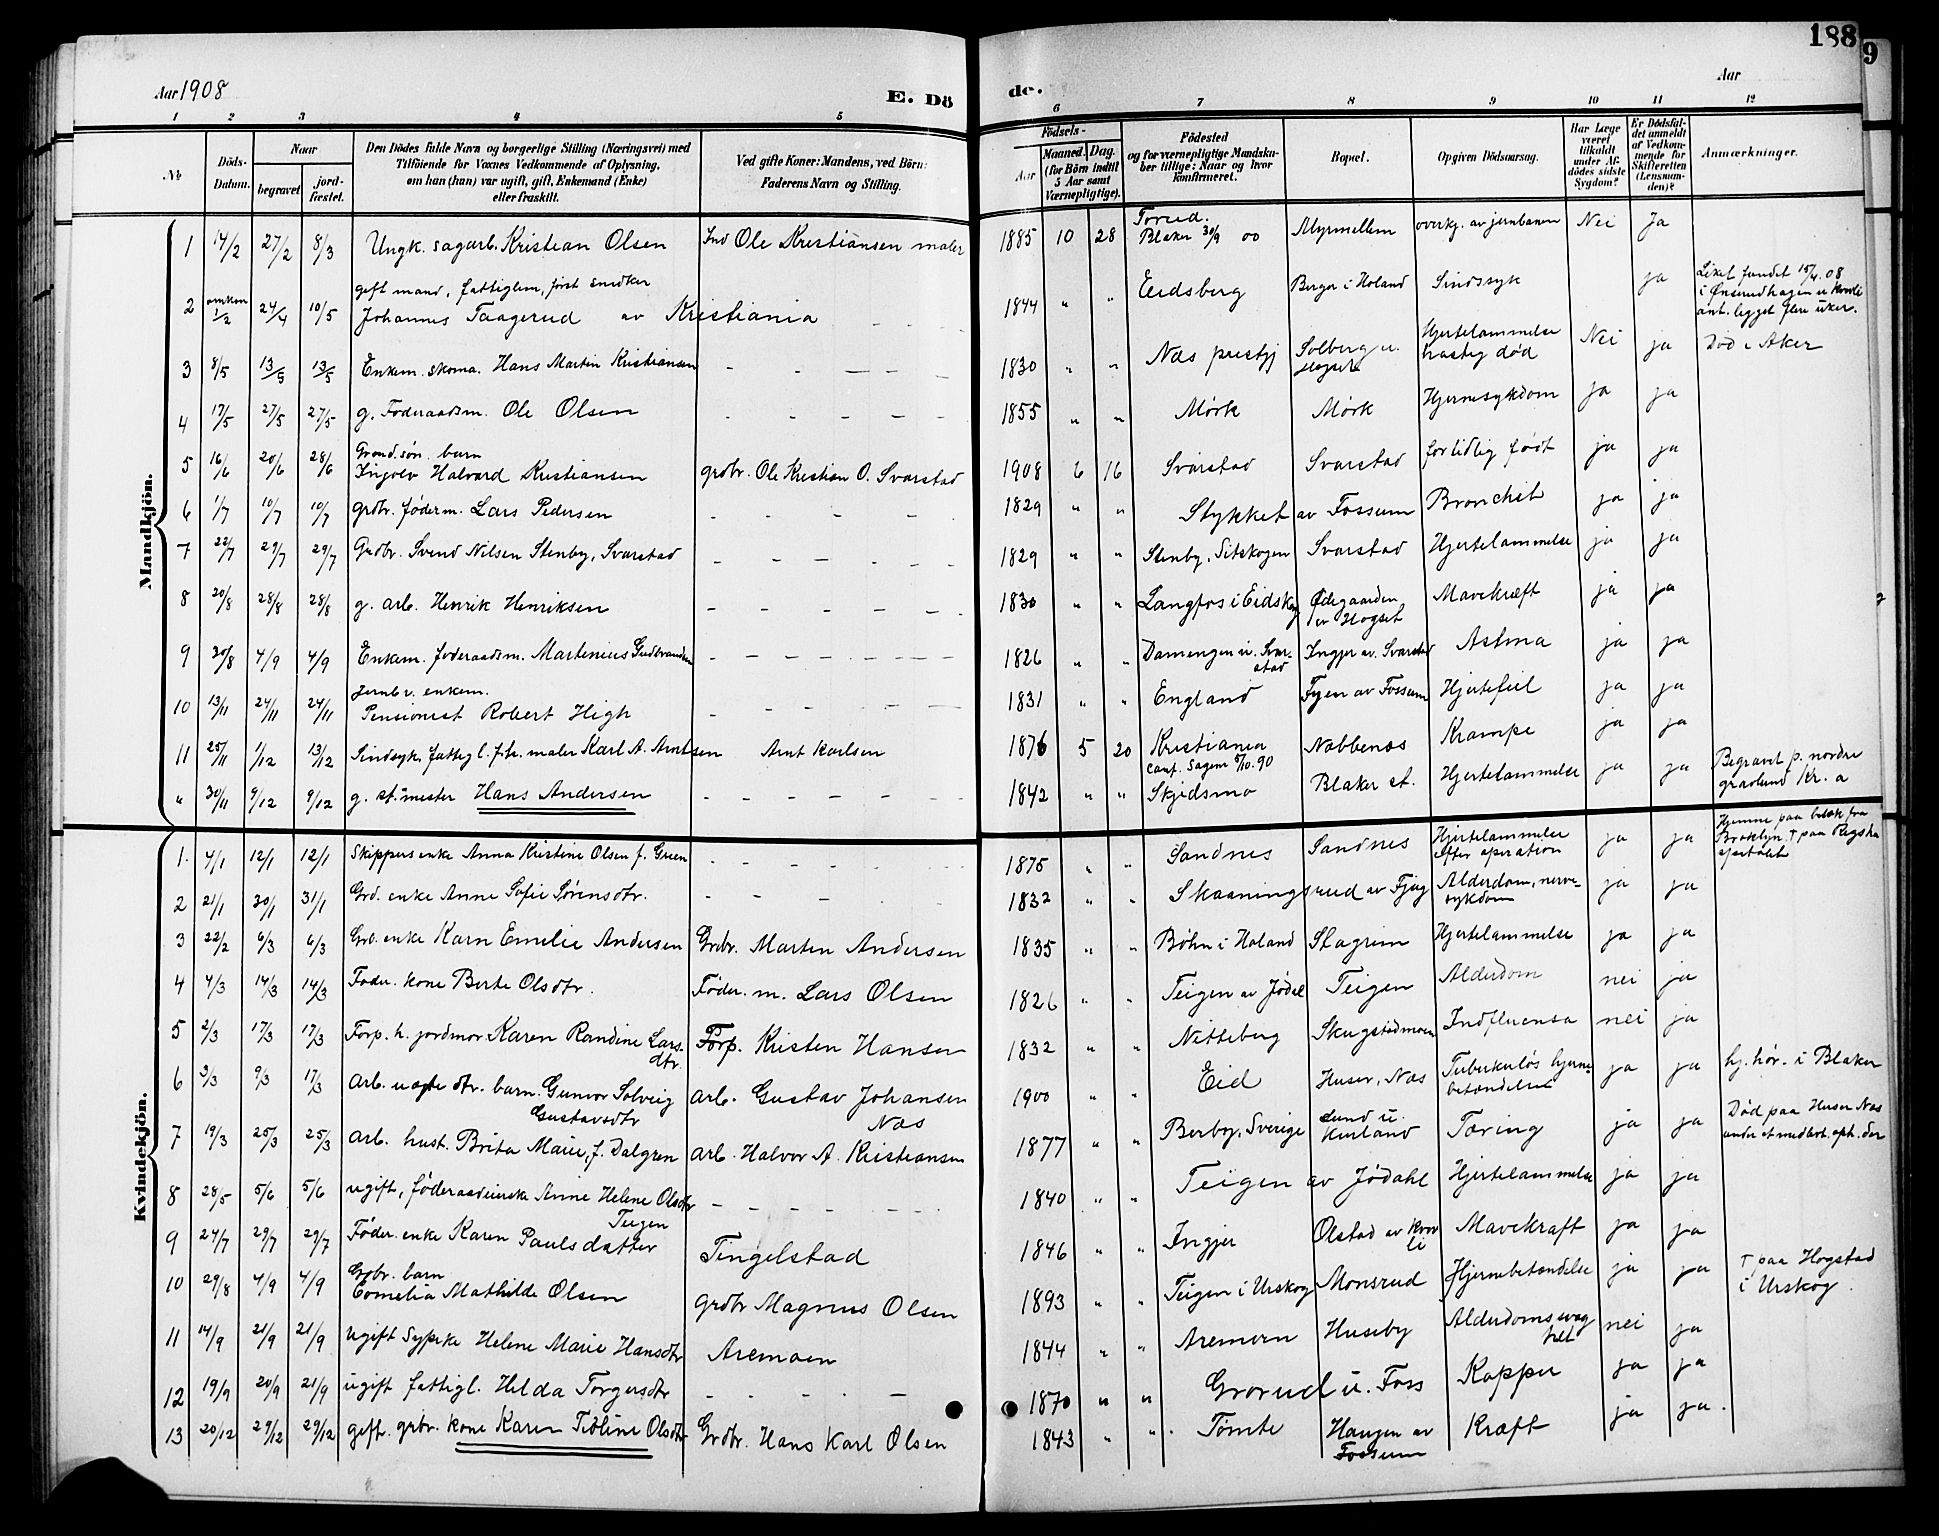 188
9
Aar 1908
E. Dö
de.
Aar
1 2 3 4 5
6 7 8 9 10 11 12
No
Döds-Datum.
Naar
begravet
jord-fæstet.
Den Dödes fulde Navn og borgerlige Stilling (Næringsvei) med
Tilföiende for Voxnes Vedkommende af Oplysning,
om han (hun) var ugift, gift, Enkemand (Enke)
eller fraskilt.
Ved gifte Koner: Mandens, ved Börn:
Faderens Navn og Stilling.
Födsels-
Aar
Maaned. Dag.
(for Börn indtil
5 Aar samt
Værnepligtige).
Födested
og for værnepligtige Mandsku-
ber tillige: Naar og hvor
konfirmeret.
Bopæl.
Opgiven Dödsaarsag.
Har Læge
været
tilkaldt
under Af-
dödes sidste
Sygdom?
Er Dödsfal-
det anmeldt
af Vedkom-
mende for
Skifteretten
(Lensman-
den)?
Anmærkninger.
Mandkjön.
1 14/2 27/2 8/3 Ungk. sagarb. Kristian Olsen Ind Ole Kristiansen maler 1885 10 28 Torud. Blaker 30/9 00 Myrmellem overkj. av jernbanen Nei Ja
2 omkom 1/2 24/4 10/5 gift mand, fattiglem, først snedker Johannes Taagerud av Kristiania 1844 " " Eidsberg Berger i Høland Sindssyk ja Liket fundet 15/4 08 i Ønserudhagen u. ant. ligget flere uker.
3 8/5 13/5 13/5 Enkem. skoma. Hans Martin Kristiansen 1830 " " Næs prestgj Solberg u. Hogset Hjertelammelse hastig død Nei ja Død i Aker
4 17/5 27/5 27/5 g. Føderaadsm. Ole Olsen 1855 " " Mørk Mørk Hjernesykdom ja ja
5 16/6 20/6 28/6 Grbrd. søn. barn Ingolv Halvard Kristiansen grdbr. Ole Kristian O. Svarstad 1908 6 16 Svarstad Svarstad for tidlig født ja ja
6 1/7 10/7 10/7 grdbr. føderm. Lars Pedersen 1829 " " Stykket av Fossum Bronchit ja ja
7 22/7 29/7 29/7 Grdbr. Svend Nilsen Stenby, Svarstad 1829 " " Stenby, Sitskogen Svarstad Hjertelammelse ja ja
8 20/8 28/8 28/8 g. arb. Henrik Henriksen 1830 " " Langfos i Eidskog Ødegaarden av Hogset Mavekræft ja ja
9 30/8 4/9 4/9 Enkem. føderaadsm. Martenius Gudbrandsen 1826 " " Damengen u. Svarstad Ingjer av Svarstad Astma ja ja
10 13/11 24/11 24/11 Jernb v. enkem. Pensionist Robert High 1831 " " England Fyen av Fossum Hjertefeil ja ja
11 25/11 1/12 13/12 Sindsyk, fattigl. f.hr. maler Karl A. Arntsen Arnt Karlsen 1876 5 20 Kristiania conf. Sagem 5/10.90 Nabbenæs Krampe ja ja
" 30/11 9/12 9/12 g. st.mester Hans Andersen 1842 " " Skjedsmo Blaker st. Hjertelammelse ja ja Begravt p. nordre gravlund Kr.a
Kvindekjön.
1. 4/1 12/1 12/1 Skippers enke Anna Kristine Olsen f. Green 1875 " " Sandnes Sandnes Hjertelammelse efter operation ja ja Hjemme paa besøk fra Brooklyn † paa Rigsho spitalet
2 21/1 30/1 31/1 Grd. enke Anne Sofie Sørensdtr. 1832 " " Skaaningsrud av Fjeig Alderdom, nerve-sykdom ja ja
3 22/2 6/3 6/3 Grb. enke Karn Emilie Andersen Grdbr. Marten Andersen 1835 " " Bøhn i Høland Stagrim Hjertelammelse ja ja
4 4/3 14/3 14/3 Føder. kone Berte Olsdtr. Føder. m. Lars Olsen 1826 " " Teigen av Jødal Teigen Alderdom nei ja
5 2/3 17/3 17/3 Forp. h. jordmor Karen Randine Larsdtr Forp. Kristen Hansen 1832 " " Nitteberg Skugstadmoen Indfluensa nei ja
6 3/3 9/3 17/3 Arb. uægte dtr. barn. Gunvor Solveig Gustavsdtr arb. Gustav Johansen Næs 1900 " " Eid Huser, Næs Tuberkuløs hjerne-betændelse ja ja hj. hør. i Blaker
7 19/3 25/3 25/3 Arb. hust. Brita Marie, f. Dalgren arb. Halvor A. Kristiansen 1877 " " Berboy, Sverige Lund u. Kurland Tæring ja ja Død paa Huser Næs under et midlert. oph. der
8 28/5 5/6 5/6 ugift, føderaadsenke Anne Helene Olsdtr Teigen 1840 " " Teigen av Jødahl Hjertelammelse ja ja
9 24/7 29/7 29/7 Føder. enke Karen Paulsdatter Tingelstad 1846 " " Ingjer Olstad av Kvevli Mavekræft ja ja
10 29/8 4/9 4/9 Grdbr. barn Cornelia Mathilde Olsen grdbr Magnus Olsen 1893 " " Teigen i Urskog Monsrud Hjernebetændelse ja ja † paa Hogstad i Urskog.
11 14/9 21/9 21/9 ugift Sypike Helene Marie Hansdtr Aremoen 1844 " " Aremoen Huseby Alderdomssvaghet nei ja
12 19/9 20/9 21/9 ugift fattigl. Hilda Torgersdtr 1870 " " Grorud u. Foss Kopper ja ja
13 20/12 29/12 29/12 gift. grbr. kone Karen Tibline Olsdtr Grdbr. Hans Karl Olsen 1843 " " Tømte Haugen av Fossum Kræft ja ja.